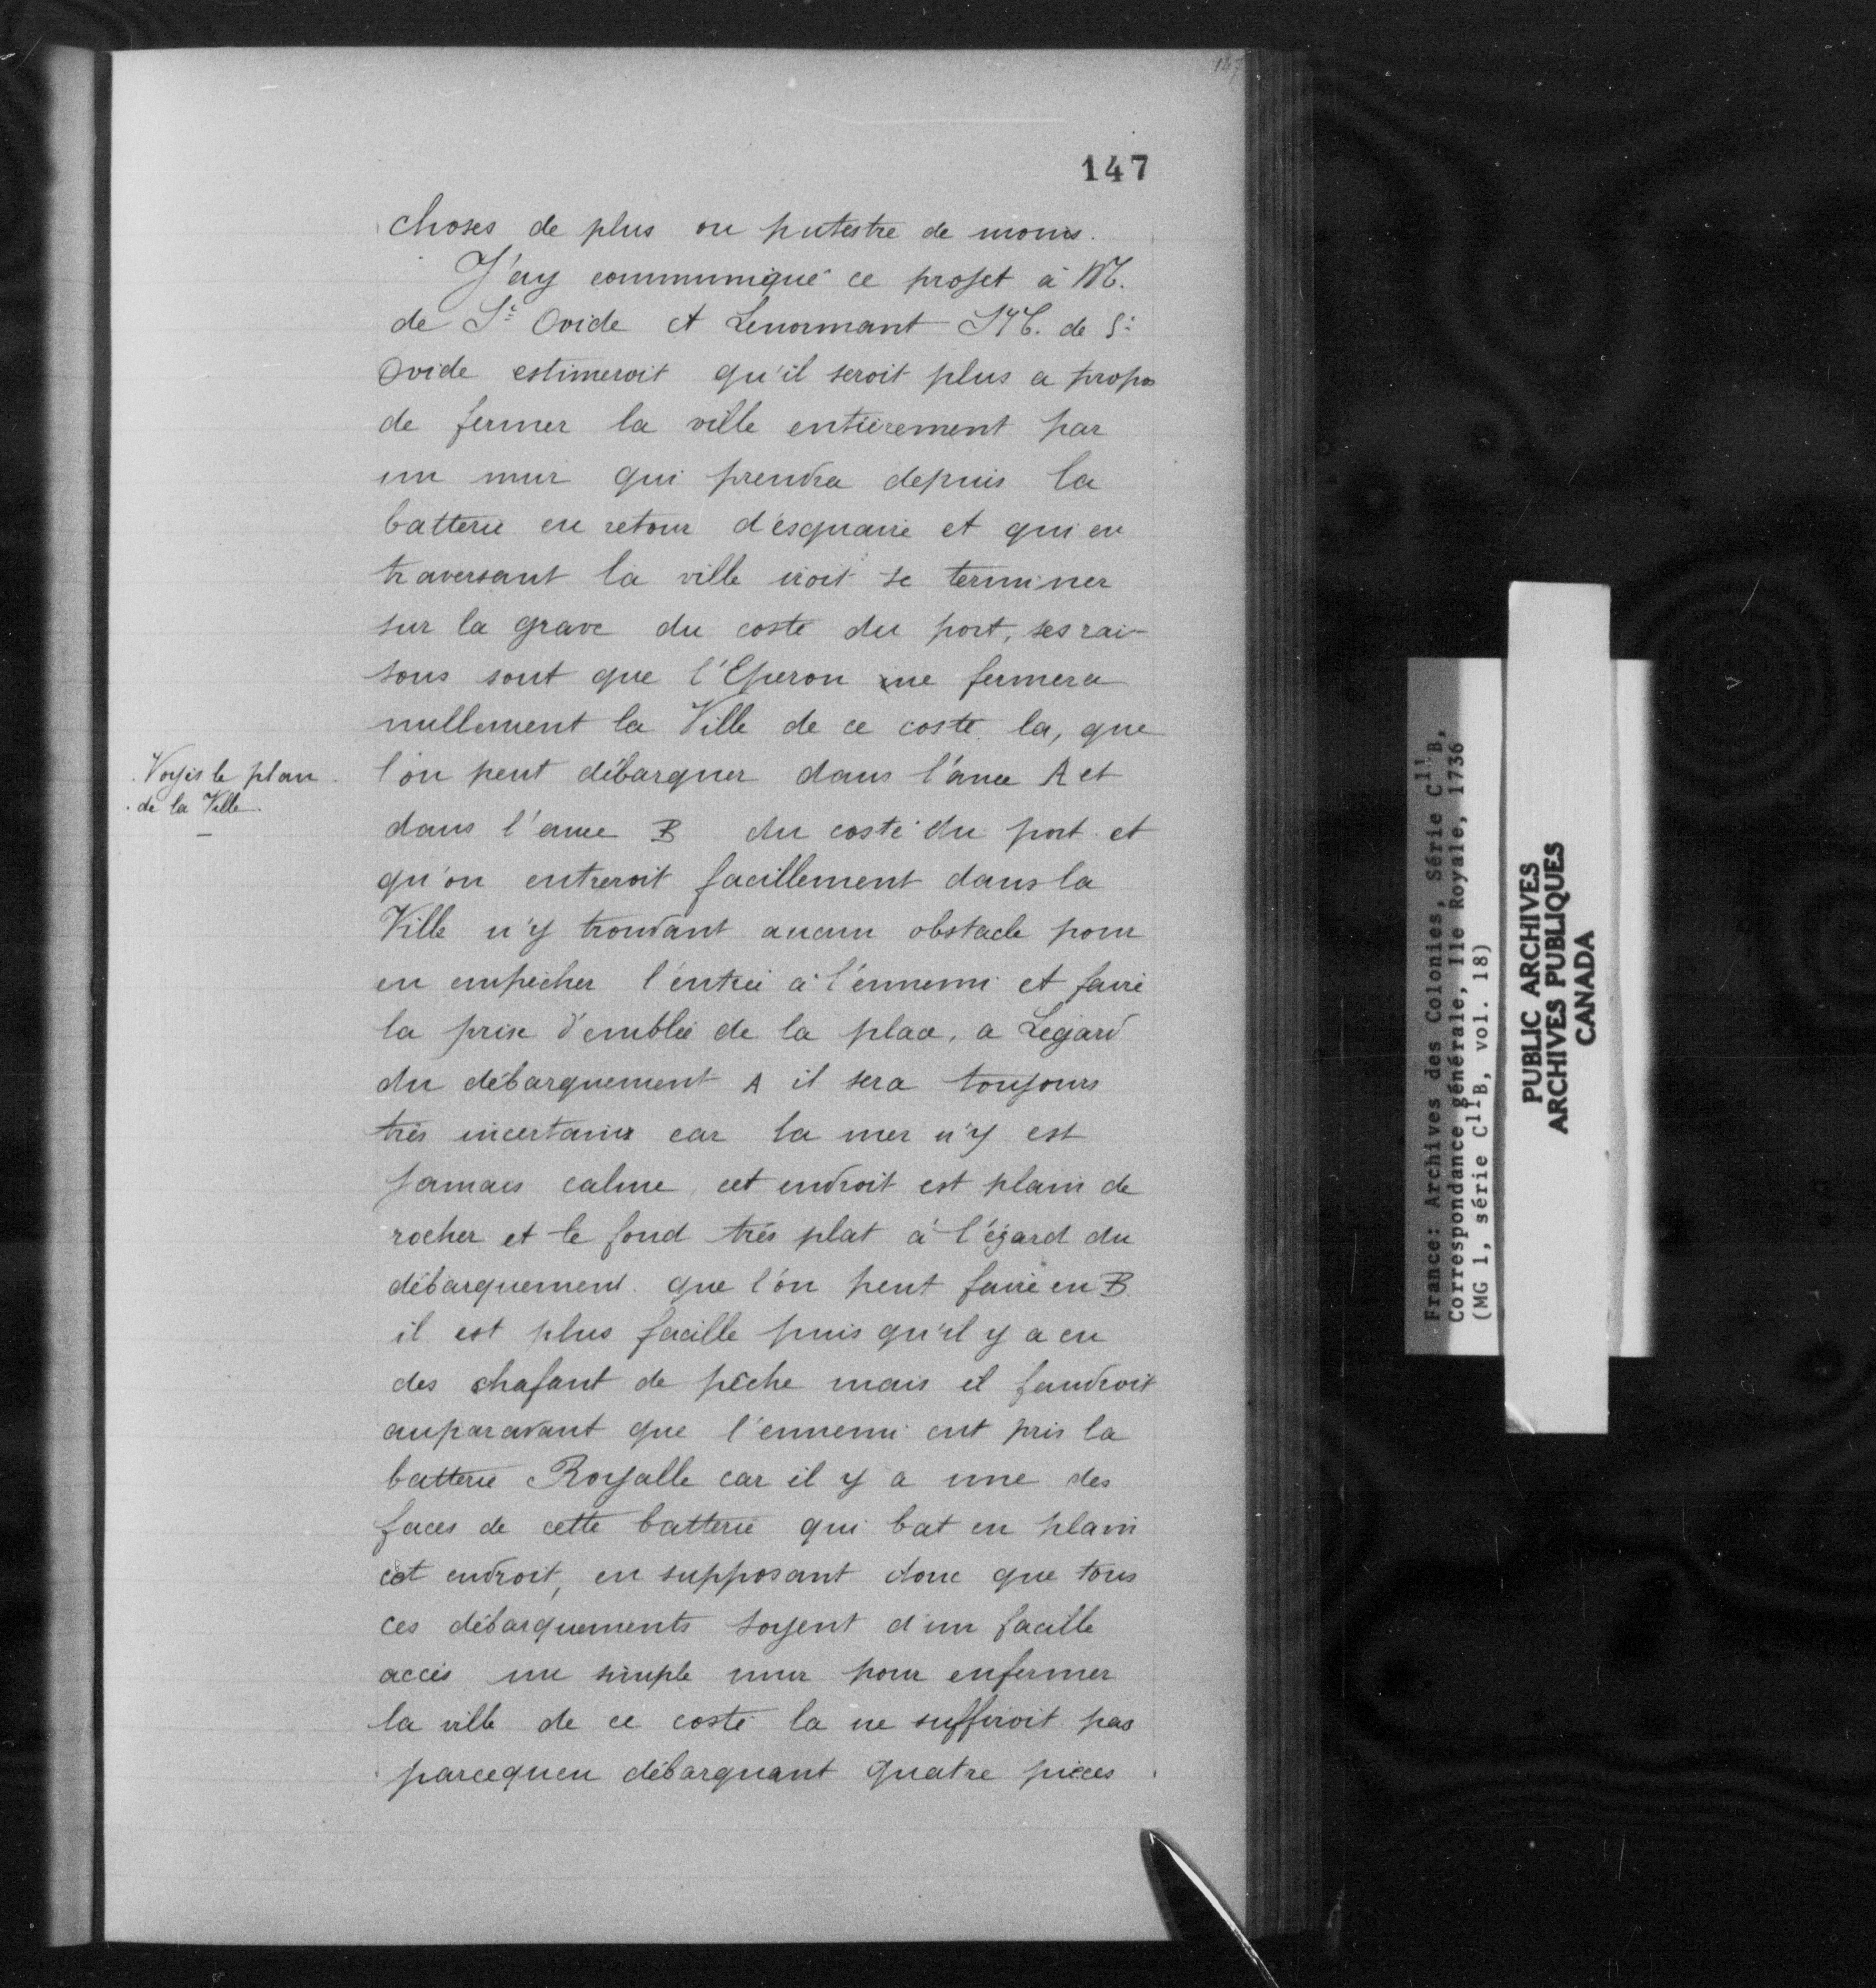 147
147
choses de plus ou putestre de moins.
J'ay communiqué ce projet à M.
de St Ovide et Lenormant M. de St
Ovide estimeroit qu'il seroit plus a propos
de fermer la ville entièrement par
un mur qui prendra depuis la
batterie en retour d'esquaire et qui en
traversant la ville iroit se terminer
sur la grave du coste du port, ses rai-
sons sont que l'Eperon ne fermera
nullement la Ville de ce coste la, que
Voyés le plan
de la Ville.
l'on peut débarquer dans l'ance A et
dans l'ance B du costé du port et
qu'on entreroit facillement dans la
Ville n'y trouvant aucun obstacle pour
en empêcher l'entrée à l'ennemi et faire
la prise d'emblée de la place, a Legard
du débarquement A il sera toujours
très incertain car la mer n'y est
jamais calme, cet endroit est plain de
rocher et le fond très plat à l'égard du
débarquement que l'on peut faire en B
il est plus facille puis qu'il y a eu
des chafant de pêche mais il faudroit
auparavant que l'ennemi eut pris la
batterie Royalle car il y a une des
faces de cette batterie qui bat en plain
cet endroit, en supposant donc que tous
ces débarquements soyent d'un facille
accès un simple mur pour enfermer
la ville de ce costé la ne suffiroit pas
parcequen débarquant quatre pièces
France: Archives des Colonies, Série C11B,
Correspondance générale, Ile Royale, 1736
(MG 1, série C11B, vol. 18)
PUBLIC ARCHIVES
ARCHIVES PUBLIQUES
CANADA